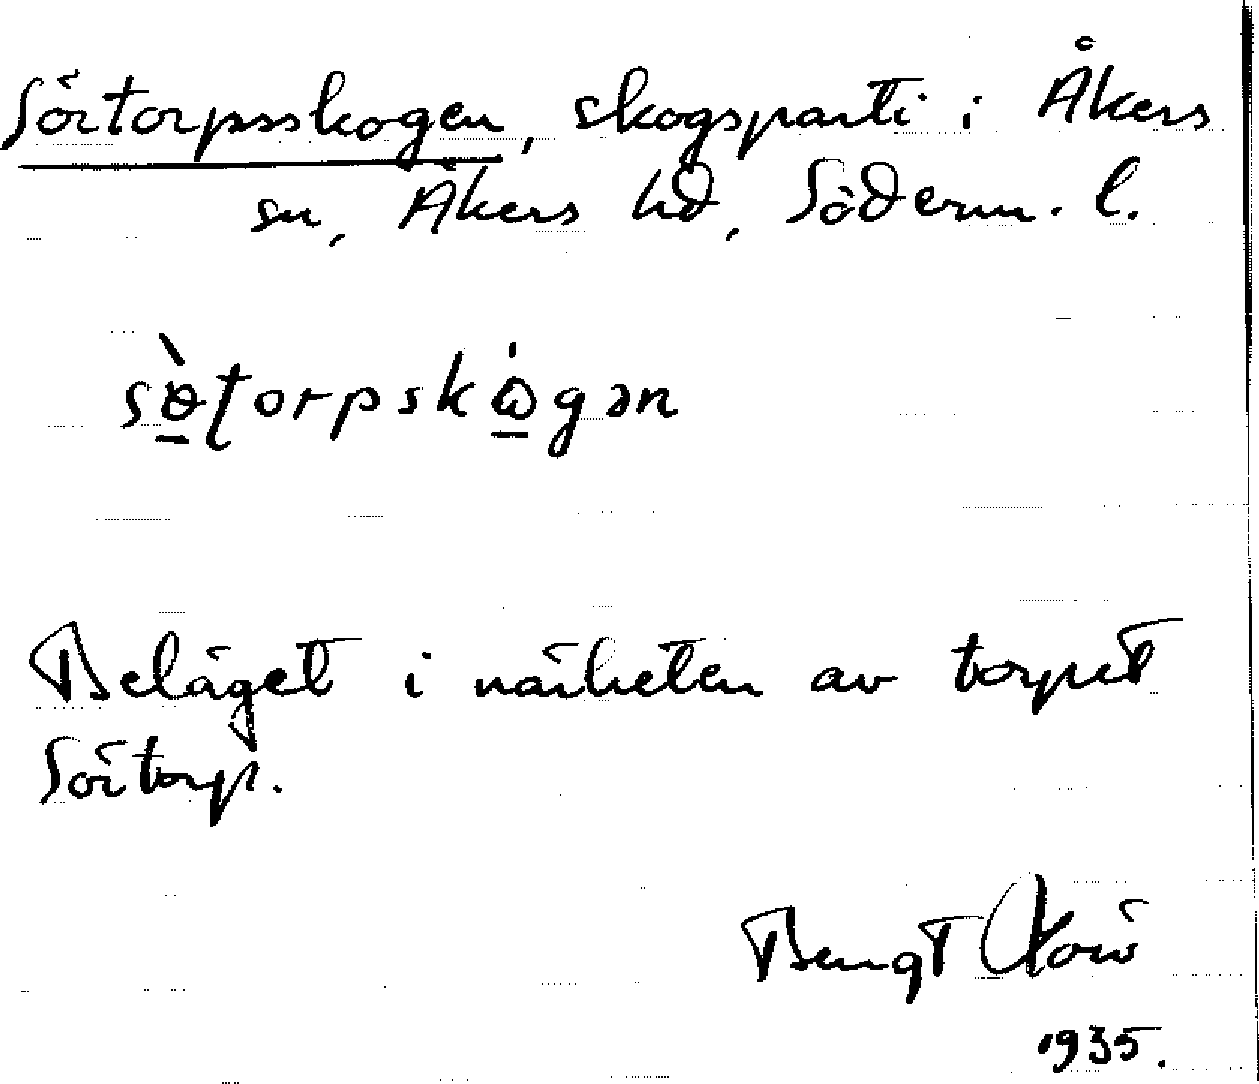 Sörtorpsskogen, skogsparti i Åkers
sn, Åkers hd, Söderm. l.
sɵ̀ʈorpskɷ́gən
Beläget i närheten av torpet
Sörtorp.
Bengt
1935.